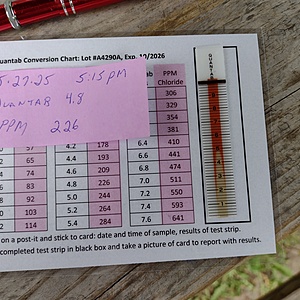 Quantab Conversion Chart: Lot #A4290A, Exp. 10/2026
5.27.25 5:15 PM
QUANTAB 4.8
PPM 226
PPM
Chloride
306
329
354
381
57 4.2 178 6.4 410
65 4.4 193 6.6 441
74 4.6 209 6.8 474
83 4.8 226 7.0 511
92 5.0 244 7.2 550
103 5.2 264 7.4 593
114 5.4 284 7.6 641
on a post-it and stick to card: date and time of sample, results of test strip.
completed test strip in black box and take a picture of card to report with results.
QUANTAB